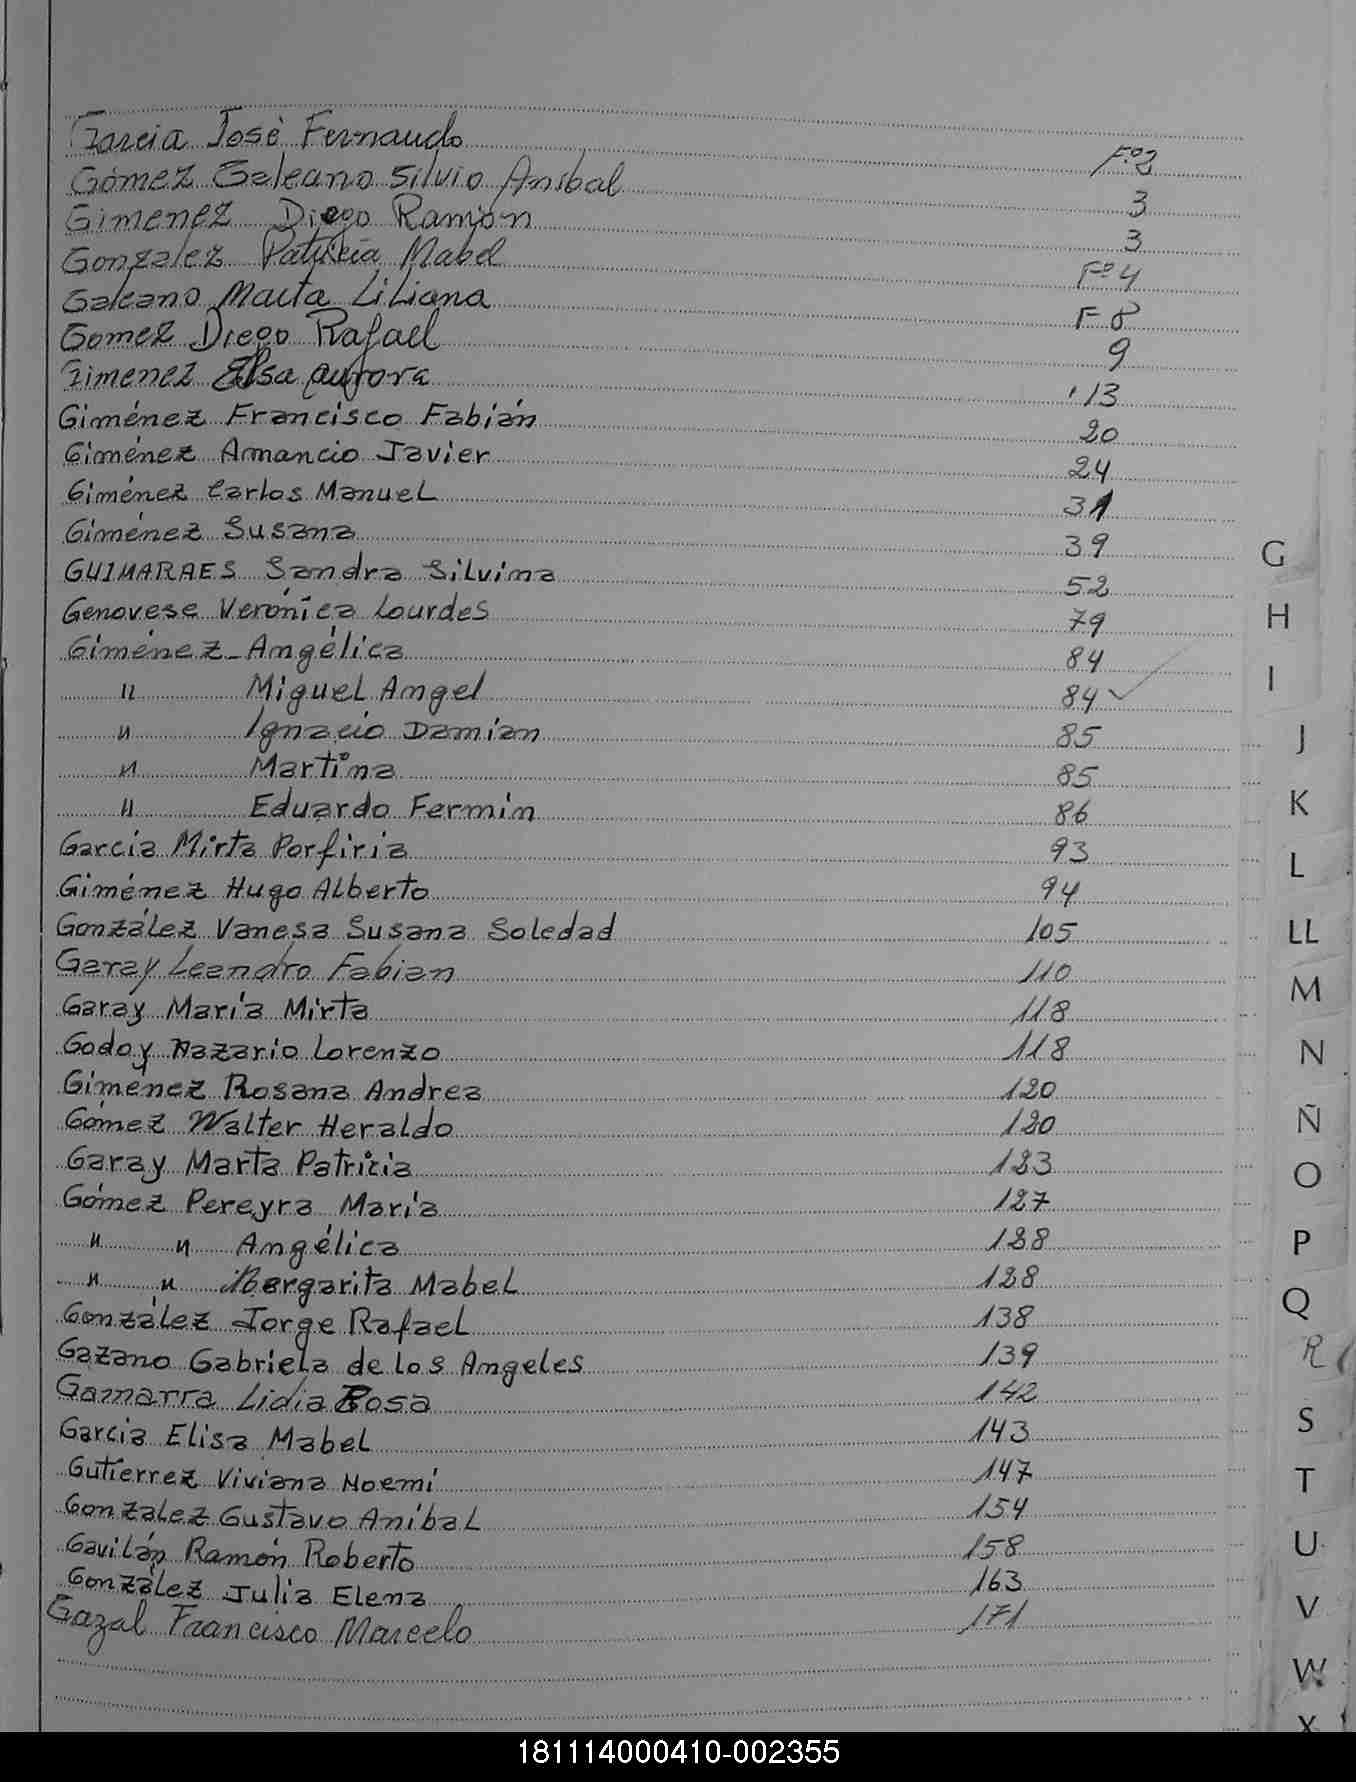 Garcia José Fernando Fº2
Gómez Galeano Silvio Anibal 3
Gimenez Diego Ramón 3
Gonzalez Patricia Mabel Fº4
Galeano Marta Liliana F 8
Gomez Diego Rafael 9
Gimenez Elsa Aurora 13
Giménez Francisco Fabián 20
Giménez Amancio Javier 24
Giménez Carlos Manuel 31
Giménez Susana 39
GUIMARAES Sandra Silvina 52
Genovese Verónica Lourdes 79
Giménez - Angélica 84
" Miguel Angel 84 ✓
" Ignacio Damian 85
" Martina 85
" Eduardo Fermin 86
Garcia Mirta Porfiria 93
Giménez Hugo Alberto 94
González Vanesa Susana Soledad 105
Garay Leandro Fabian 110
Garay María Mirta 118
Godoy Nazario Lorenzo 118
Gimenez Rosana Andrea 120
Gómez Walter Heraldo 120
Garay Marta Patricia 123
Gómez Pereyra María 127
" " Angélica 128
" " Margarita Mabel 128
González Jorge Rafael 138
Gazano Gabriela de los Angeles 139
Gamarra Lidia Rosa 142
Garcia Elisa Mabel 143
Gutierrez Viviana Noemí 147
Gonzalez Gustavo Aníbal 154
Gavilán Ramón Roberto 158
González Julia Elena 163
Gazal Francisco Marcelo 171
G
H
I
J
K
L
LL
M
N
Ñ
O
P
Q
R
S
T
U
V
W
X
181114000410-002355